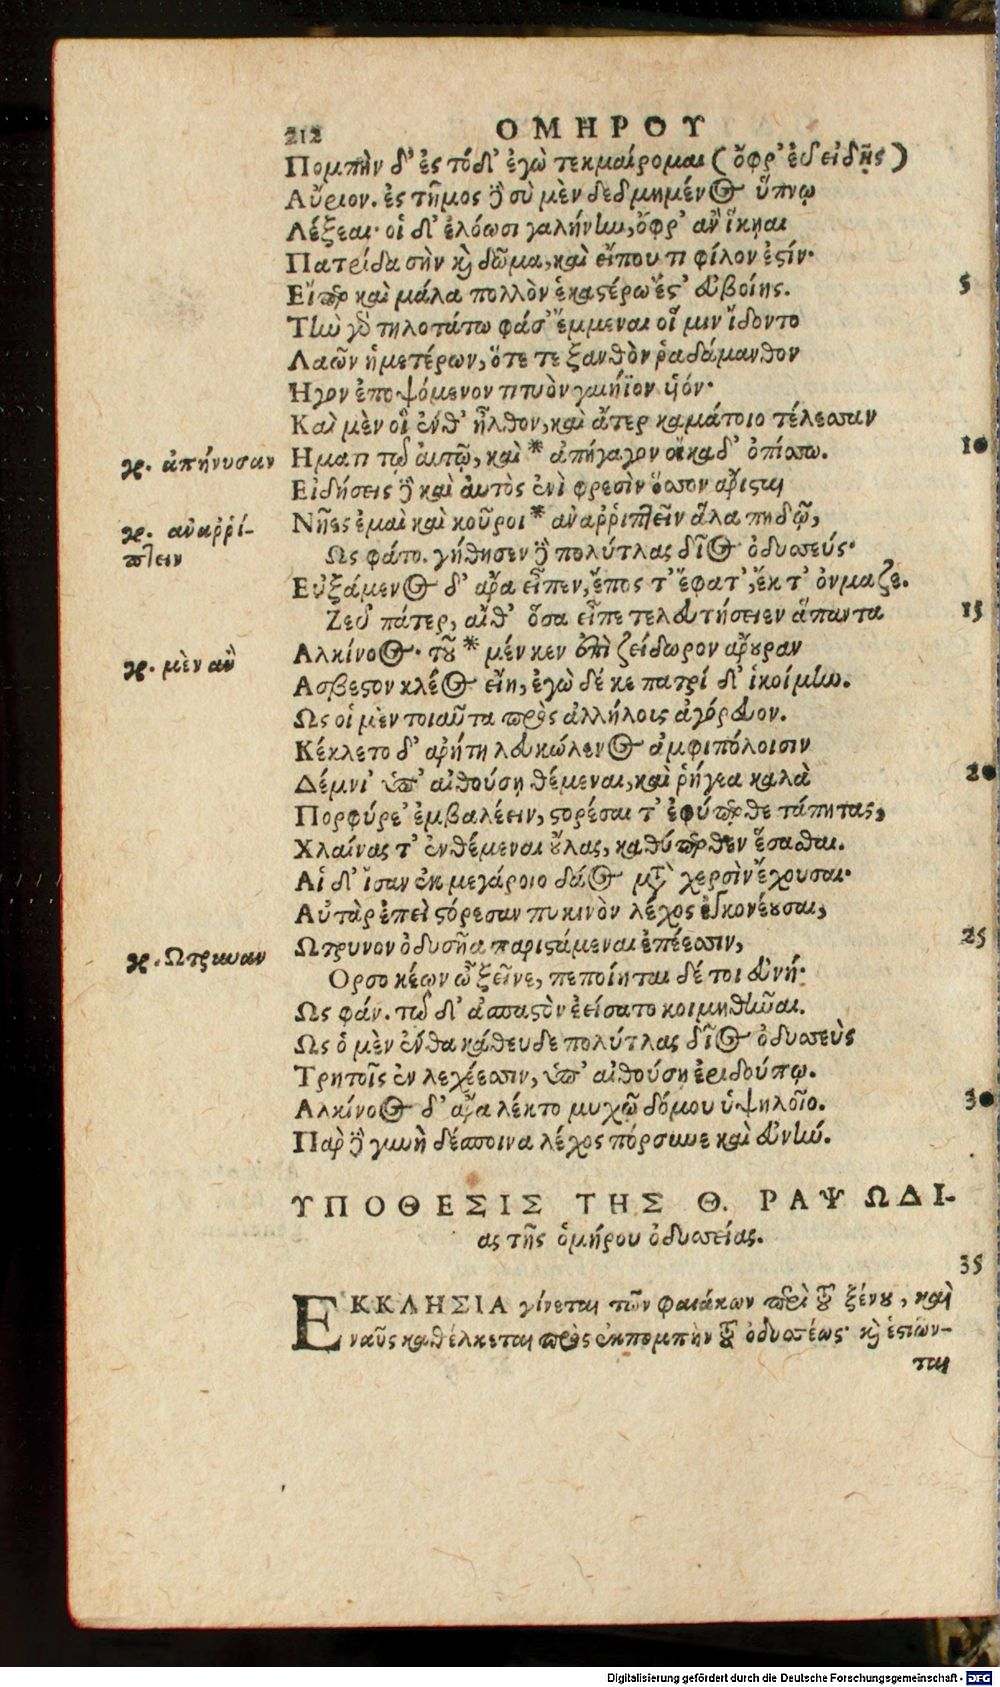 212 ΟΜΗΡΟΥ
Πομπὴν δ' ἐς τόδ' ἐγὼ τεκμαίρομαι (ὄφρ' εὖ εἰδῇς)
Αὔριον. ἐς τῆμος δὲ σὺ μὲν δεδμημένος ὕπνῳ
Λέξεαι· οἱ δ' ἐλόωσι γαλήνην, ὄφρ' ἂν ἵκηαι
Πατρίδα σὴν καὶ δῶμα, καὶ εἴπου τι φίλον ἐστίν·
Εἴπερ καὶ μάλα πολλὸν ἑκαστέρω ἔστ' εὐβοίης. 5
Τὴν γὰρ τηλοτάτω φάσ' ἔμμεναι οἵ μιν ἴδοντο
Λαῶν ἡμετέρων, ὅτε τε ξανθὸν ῥαδάμανθον
Ἦγον ἐποψόμενον τιτυὸν γαιήϊον υἱόν·
Καὶ μὲν οἳ ἔνθ' ἦλθον, καὶ ἄτερ καμάτοιο τέλεσσαν
γρ. ἀπήνυσαν Ηματι τῷ αὐτῷ, καὶ * ἀπήγαγον οἴκαδ' ὀπίσσω. 10
Εἰδήσεις δὲ καὶ αὐτὸς ἐνὶ φρεσὶν ὅσσον ἄρισται
γρ. ἀναρρί- Νῆες ἐμαὶ καὶ κοῦροι * ἀναρριπτεῖν ἅλα πηδῷ,
πτειν Ως φάτο. γήθησεν δὲ πολύτλας δῖος ὀδυσσεύς·
Εὐξάμενος δ' ἄρα εἶπεν, ἔπος τ' ἔφατ', ἔκ τ' ὀνόμαζε.
Ζεῦ πάτερ, αἴθ' ὅσα εἶπε τελευτήσειεν ἅπαντα 15
γρ. μὲν ἂν Αλκίνοος· τοῦ * μέν κεν ἐπὶ ζείδωρον ἄρουραν
Ασβεστον κλέος εἴη, ἐγὼ δέ κε πατρίδ' ἱκοίμην.
Ως οἱ μὲν τοιαῦτα πρὸς ἀλλήλους ἀγόρευον.
Κέκλετο δ' ἀρήτη λευκώλενος ἀμφιπόλοισιν
Δέμνι' ὑπ' αἰθούσῃ θέμεναι, καὶ ῥήγεα καλὰ 20
Πορφύρε' ἐμβαλέειν, στορέσαι τ' ἐφύπερθε τάπητας,
Χλαίνας τ' ἐνθέμεναι οὔλας, καθύπερθεν ἕσασθαι.
Αἱ δ' ἴσαν ἐκ μεγάροιο δάος μετὰ χερσὶν ἔχουσαι·
Αὐτὰρ ἐπεὶ στόρεσαν πυκινὸν λέχος ἐγκονέουσαι,
γρ. Ωτρυναν Ωτρυνον ὀδυσῆα παριστάμεναι ἐπέεσσιν, 25
Ορσο κέων ὦ ξεῖνε, πεποίηται δέ τοι εὐνή·
Ως φάν. τῷ δ' ἀσπαστὸν ἐείσατο κοιμηθῆναι.
Ως ὁ μὲν ἔνθα κάθευδε πολύτλας δῖος ὀδυσσεὺς
Τρητοῖς ἐν λεχέεσσιν, ὑπ' αἰθούσῃ ἐριδούπῳ.
Αλκίνοος δ' ἄρα λέκτο μυχῷ δόμου ὑψηλοῖο. 30
Πὰρ δὲ γυνὴ δέσποινα λέχος πόρσυνε καὶ εὐνήν.
ΥΠΟΘΕΣΙΣ ΤΗΣ Θ. ΡΑΨΩΔΙ-
ας τῆς ὁμήρου ὀδυσσείας.
35
ΕΚΚΛΗΣΙΑ γίνεται τῶν φαιάκων περὶ τοῦ ξένου, καὶ
ναῦς καθέλκεται πρὸς ἐκπομπὴν τοῦ ὀδυσσέως· καὶ ἑστιῶν-
ται
Digitalisierung gefördert durch die Deutsche Forschungsgemeinschaft - DFG